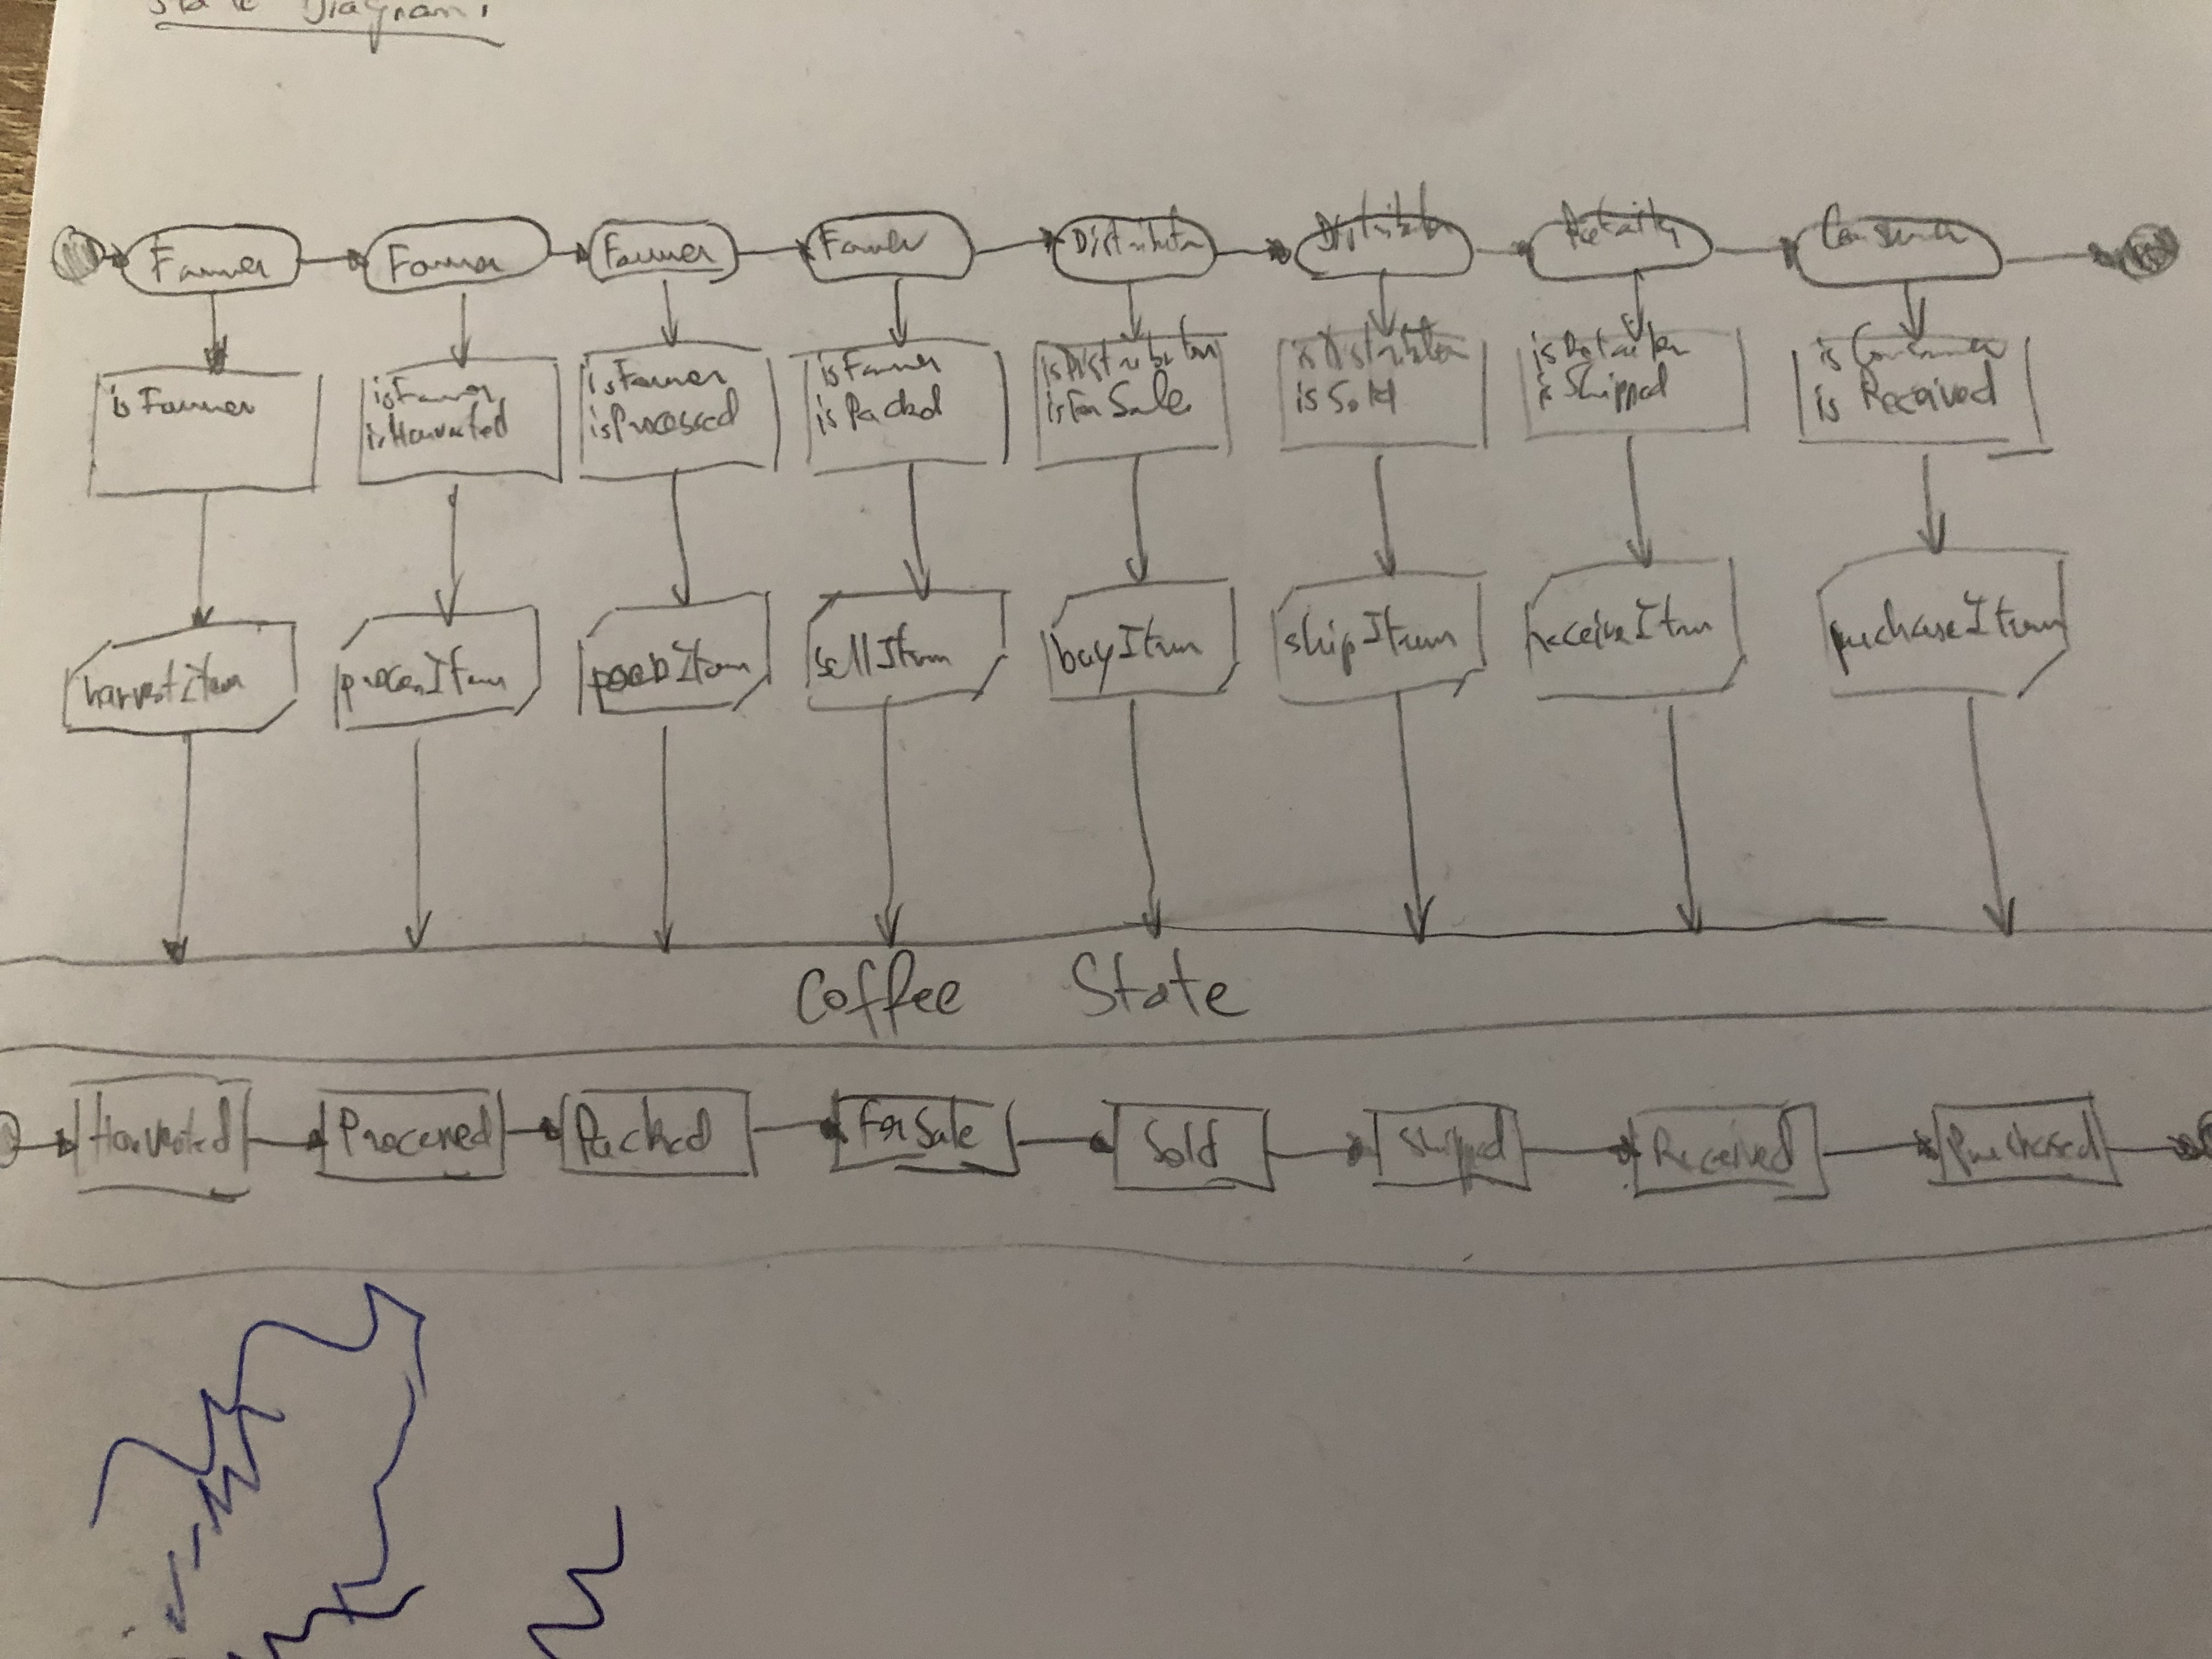 State Diagram:
Farmer
Farmer
Farmer
Farmer
Distributor
Distributor
Retailer
Consumer
isFarmer
isFarmer
isHarvested
isFarmer
isProcessed
isFarmer
isPacked
isDistributor
isForSale
isDistributor
isSold
isRetailer
isShipped
isConsumer
isReceived
harvestItem
processItem
packItem
sellItem
buyItem
shipItem
receiveItem
purchaseItem
Coffee State
Harvested
Processed
Packed
ForSale
Sold
Shipped
Received
Purchased